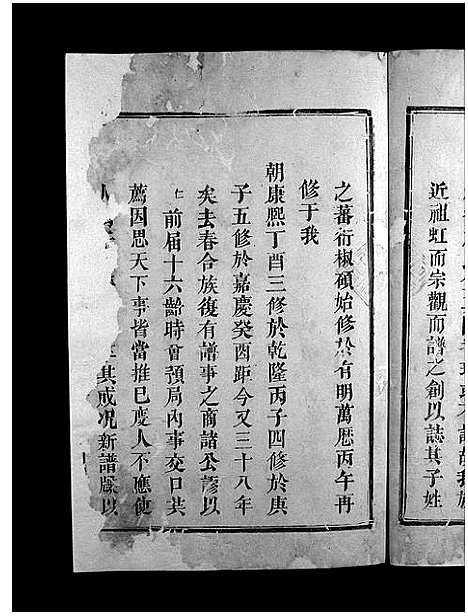 近祖虹而宗觀而譜之創以誌其子姓
之蕃衍椒碩始修於有明萬曆丙午再
修于我
朝康熙丁酉三修於乾隆丙子四修於庚
子五修於嘉慶癸酉距今又三十八年
矣去春合族復有譜事之商諸公謬以
仁前届十六齡時會預局內事交口共
薦因思天下事皆當推已度人不應使
其戒况新譜牒以